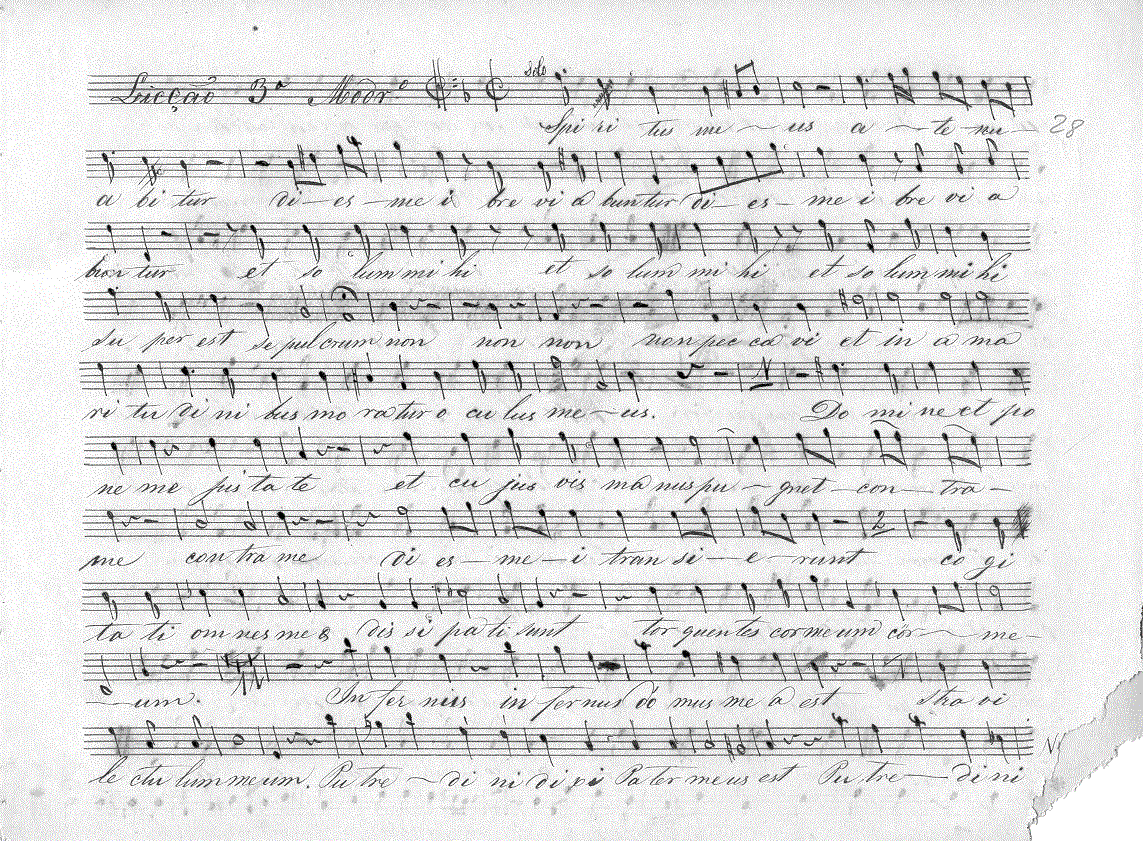 Licção 3ª Modrº solo
Spi ri tus me us a te nu 28
a bi tur di es me i bre vi a buntur di es me i bre vi a
bon tur et so lum mi hi et so lum mi hi et so lum mi hi
su per est se pul crum non non non non pec ca vi et in a ma
ri tu di ni bus mo ra tur o cu lus me us. Do mi ne et po
ne me jus ta te et cu jus vis ma nus pu gnet con tra
me contra me di es me i tran si e runt co gi
ta ti om nes me dis si pa ti sunt tor quentes cor meum cor me
um. In fer nus in fer nus do mus me a est stra vi
2
le ctu lum meum. Pu tre di ni di xi Pa ter me us est Pu tre di ni